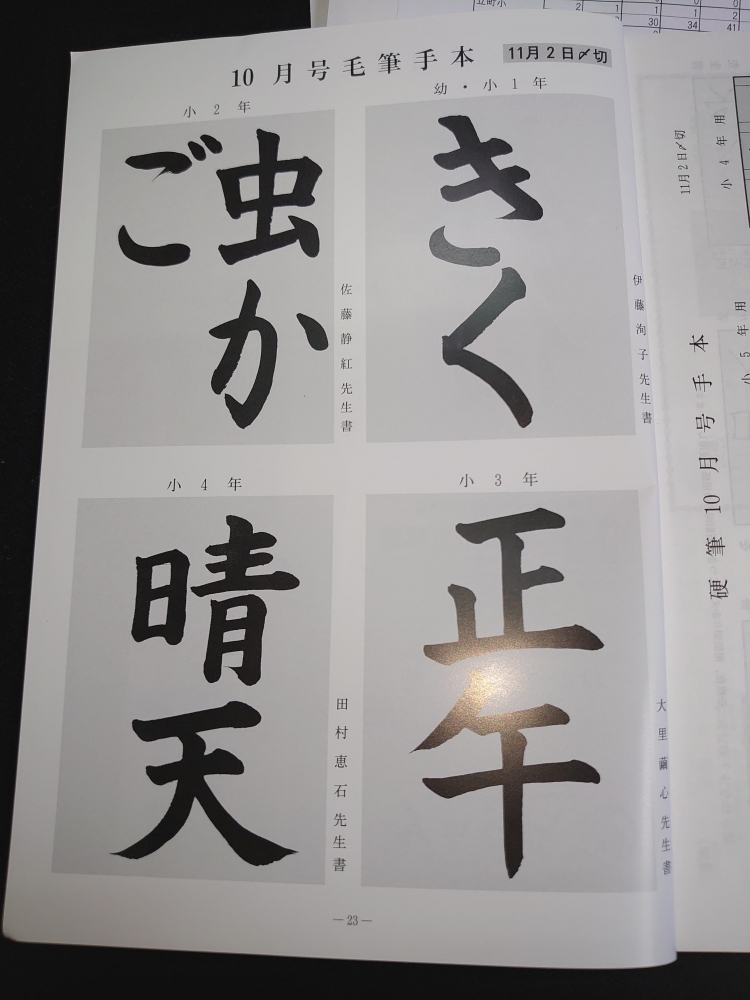 10月号毛筆手本
11月2日〆切
幼・小1年
きく
伊藤洵子先生書
小2年
虫か
ご
佐藤静紅先生書
小3年
正午
大里繭心先生書
小4年
晴天
田村恵石先生書
—23—
硬筆10月号手本
11月2日〆切
小4年用
小5年用
立町小
2 1 1 2
30 34 41